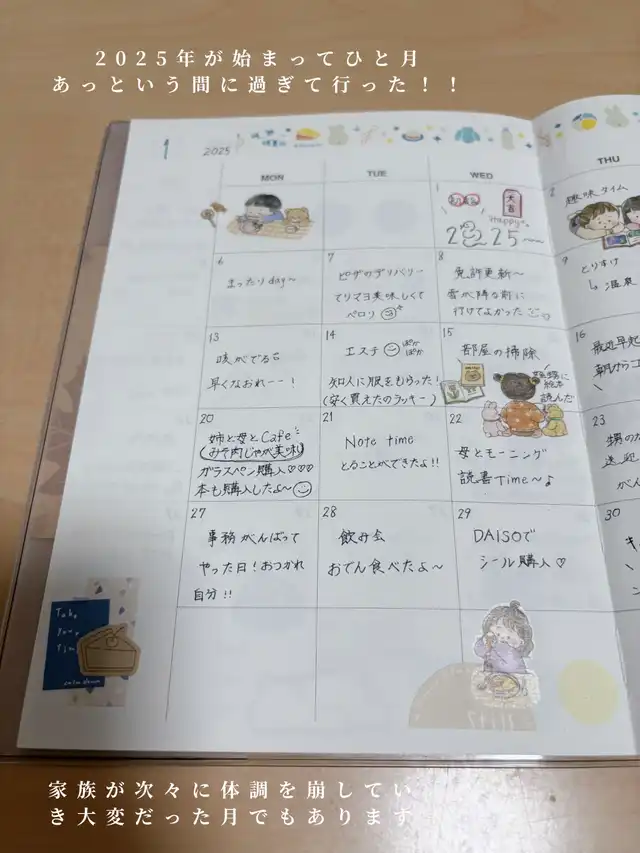 2025年が始まってひと月
あっという間に過ぎて行った！！
1
2025
MON
TUE
WED
THU
1
初詣
大吉
Happy
2025
2
趣味タイム
6
まったりday〜
7
ピザのデリバリー
テリマヨ美味しくて
ペロリ
8
免許更新〜
雪が降る前に
行けてよかった
9
とりすけ
↳温泉
13
咳がでる
早くなおれーー!
14
エステ
ぽか
ぽか
知人に服をもらった!
(安く買えたのラッキー)
15
部屋の掃除
絵本
読んだ
16
最近早起
朝から
20
姉と母とCafe
みそ肉じゃが美味し
ガラスペン購入♡♡♡
本も購入したよ〜
21
Note time
とることができたよ!!
22
母とモーニング
読書Time〜♪
23
送迎
がん
27
事務がんばって
やった日!おつかれ
自分!!
28
飲み会
おでん食べたよ〜
29
DAISOで
シール購入♡
30
Take
Your
Time
calm down
家族が次々に体調を崩してい
き大変だった月でもあります